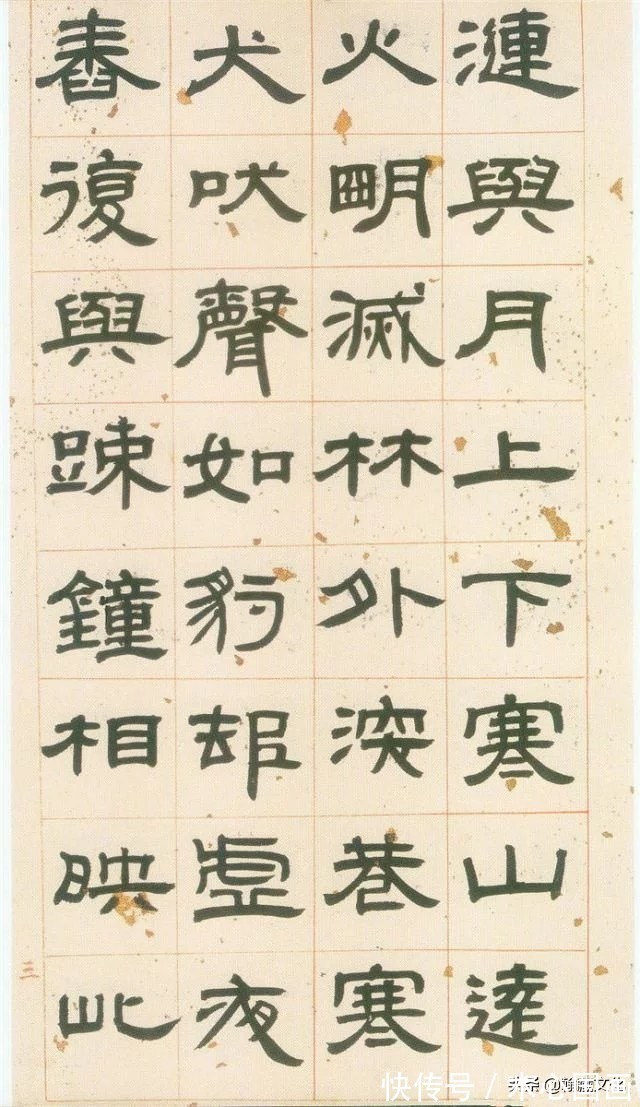 漣與月上下寒山遠
火朙滅林外深巷寒
犬吠聲如豹邨虛夜
舂復與踈鐘相映此
三
快传号
头条